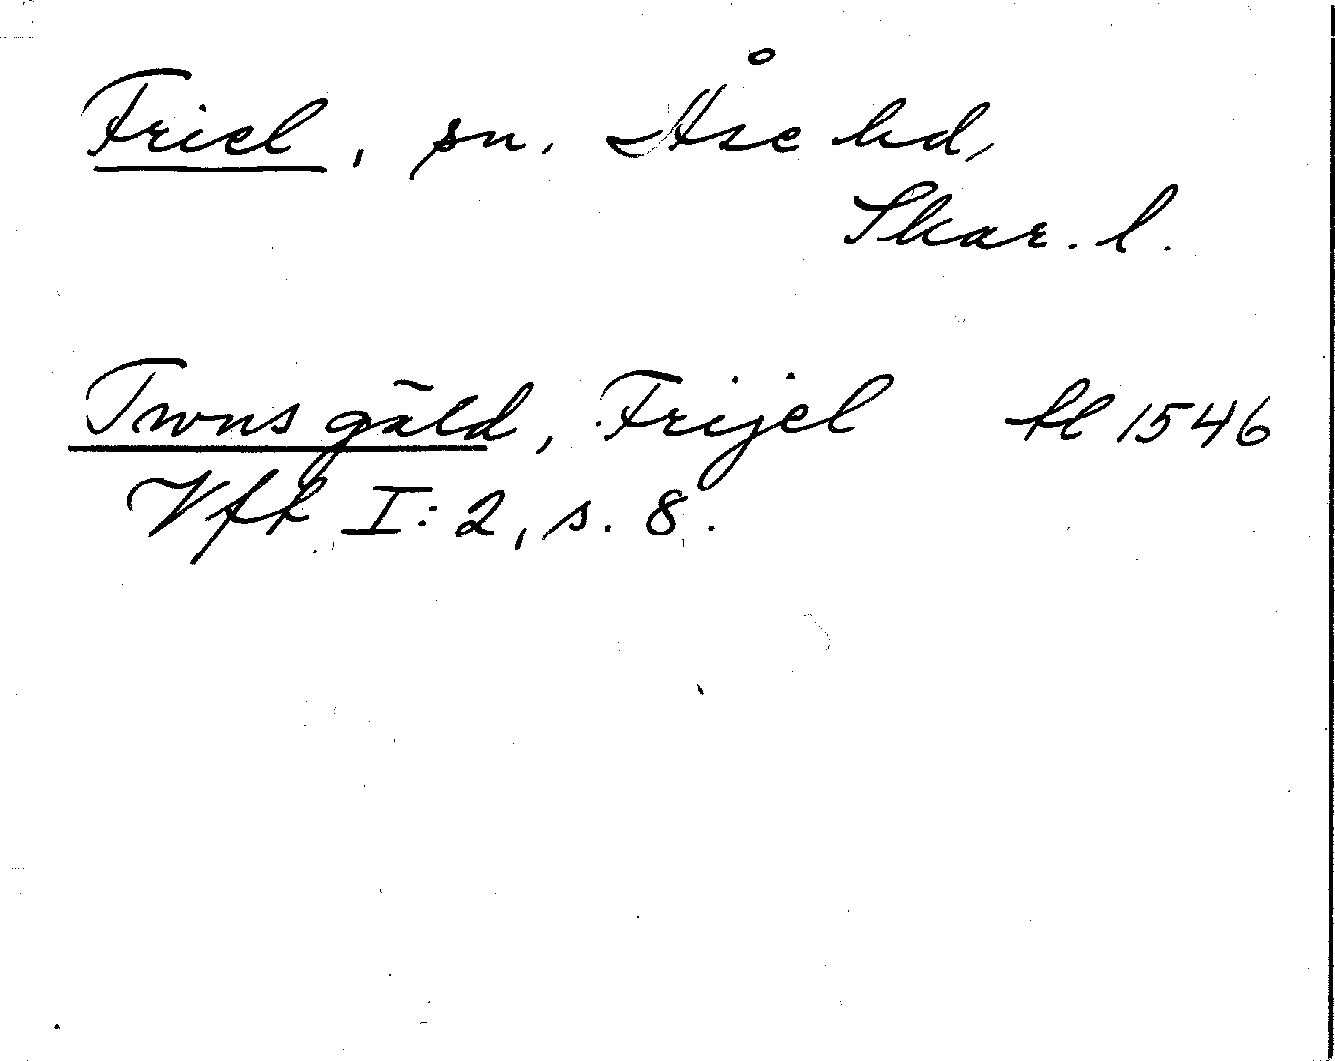 Friel, sn. Åse hd,
Skar. l.
Twns gäld, Frijel fl 1546
Vfk I:2, s. 8.